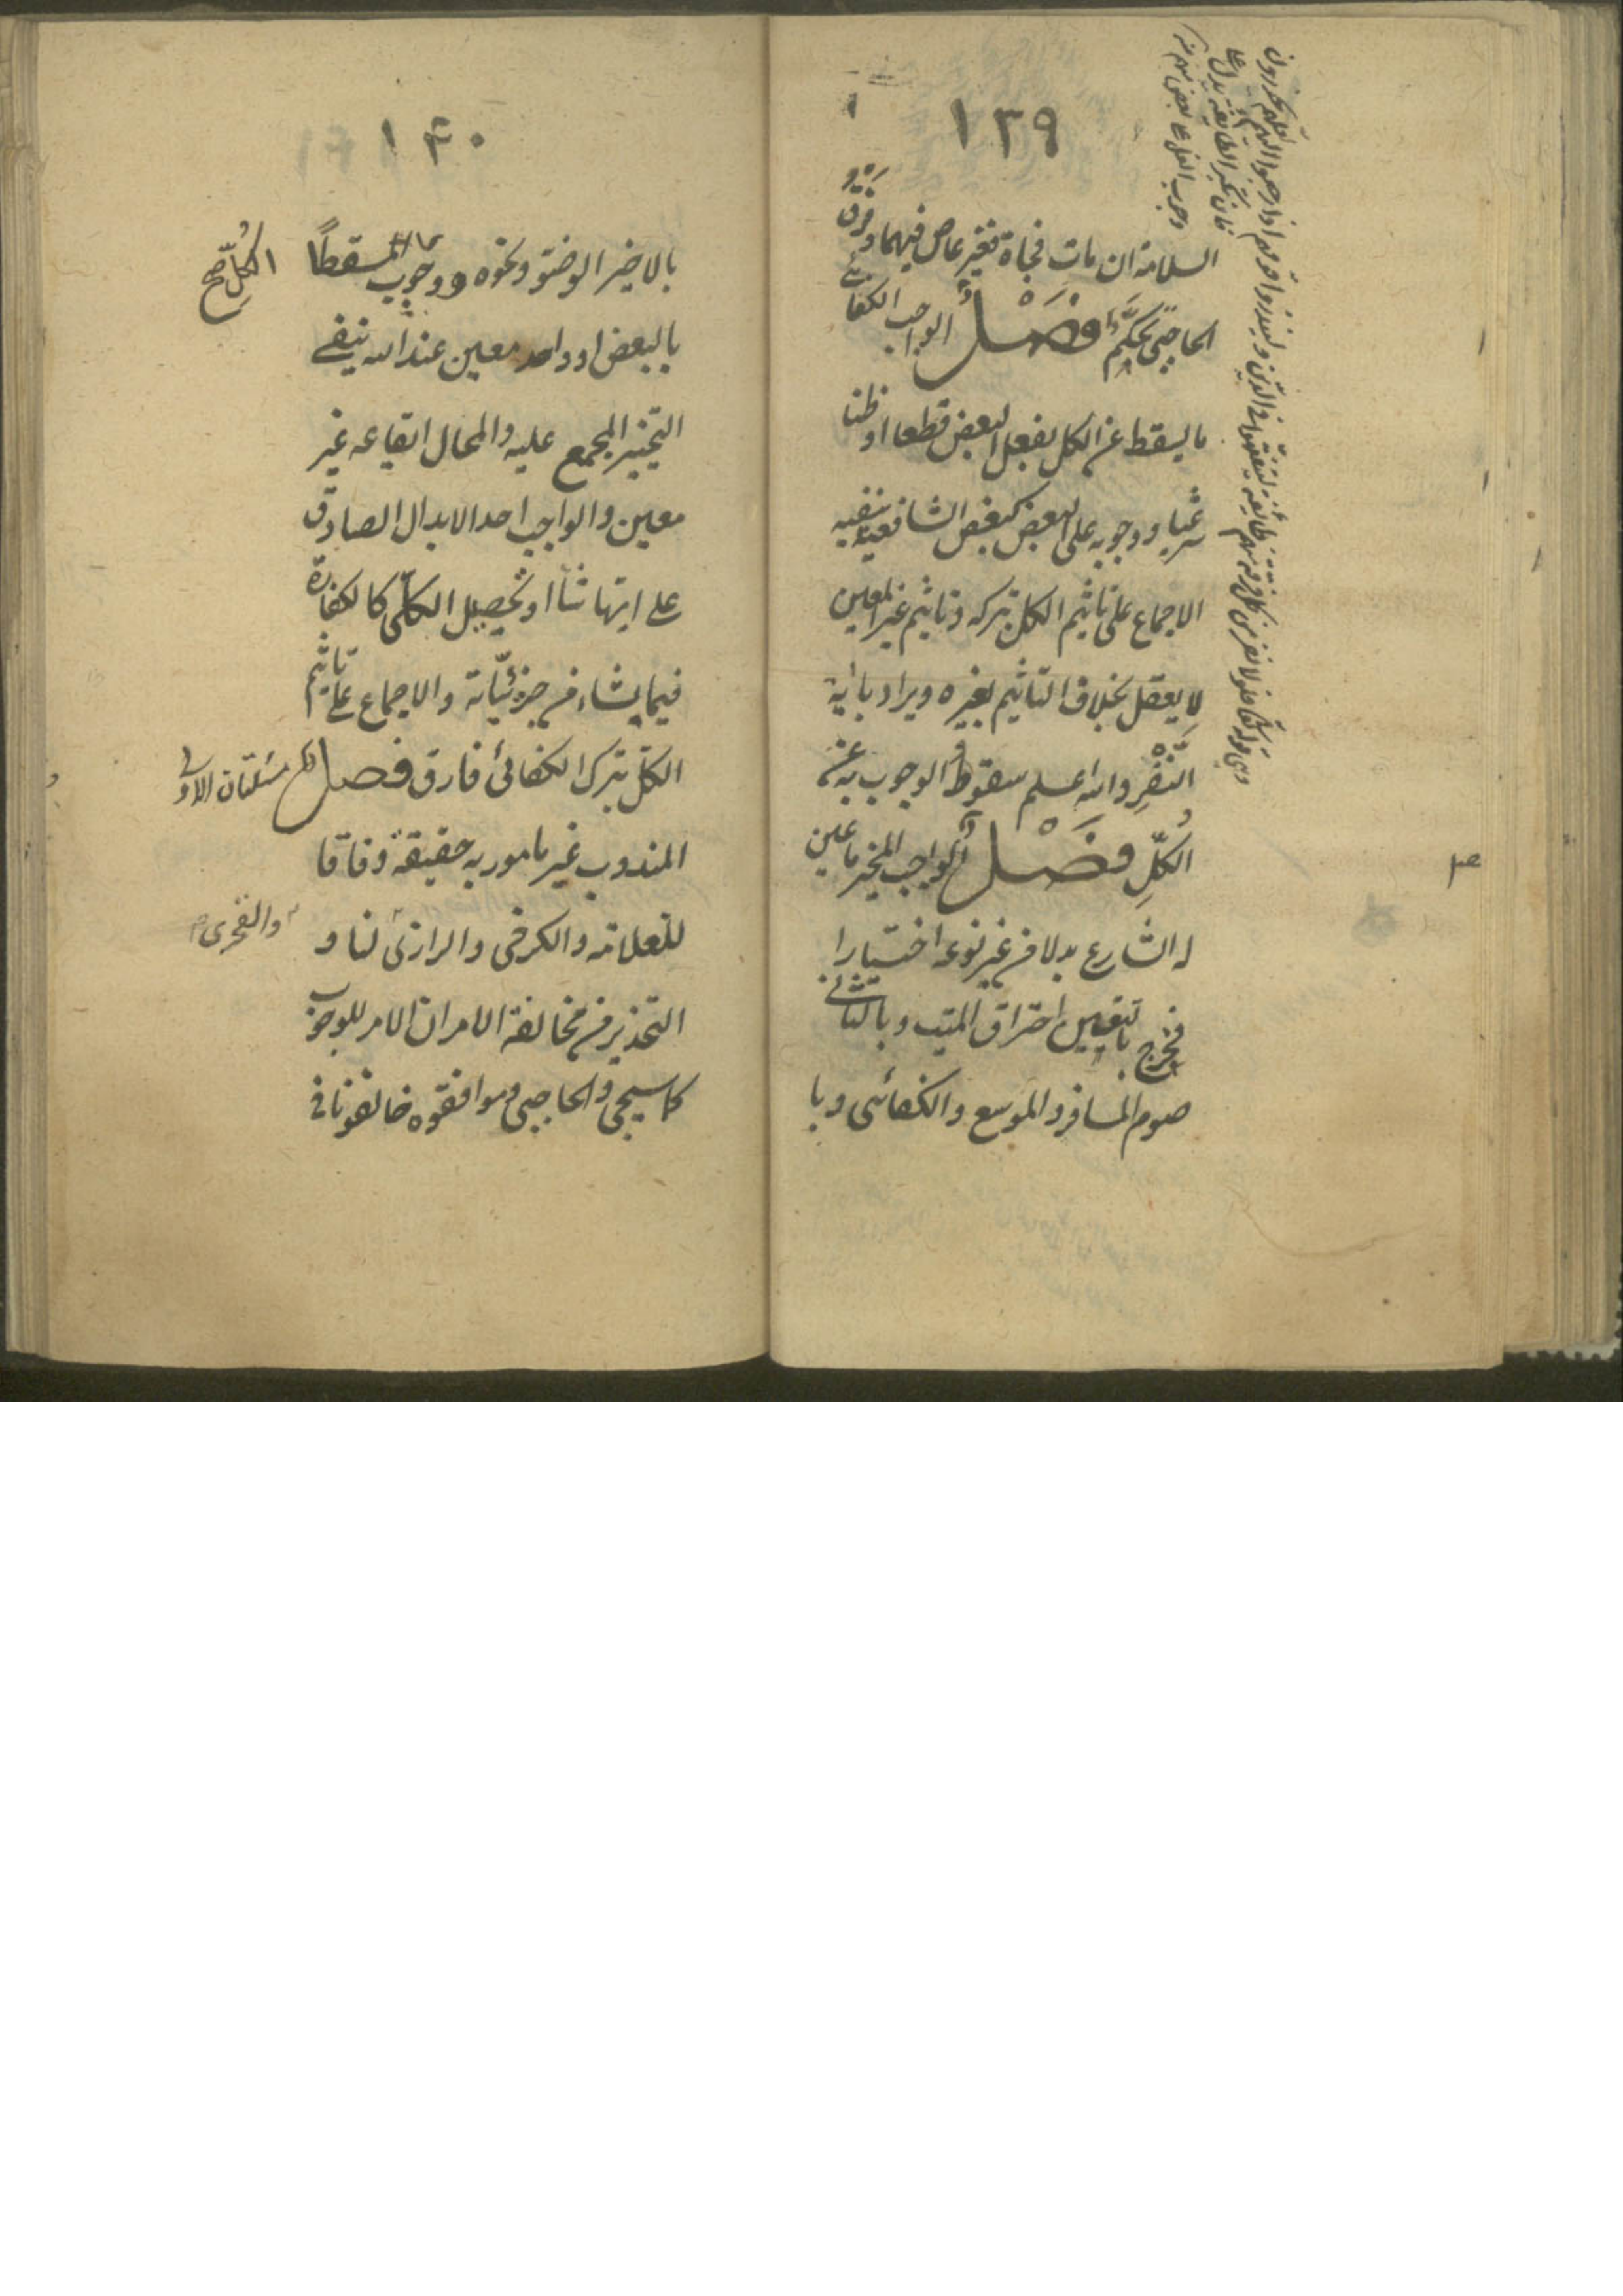 ١٣٩
السلامة ان مات فجاة فغير عاص فيهما وفرق
الحاجبي تحكم فصل الواجب الكفائي
ما يسقط عن الكل بفعل البعض قطعا او ظنا
شرعيا ووجوبه على البعض كبعض الشافعية ينفيه
الاجماع على تاثيم الكل بتركه وتاثيم غير المعين
لا يعقل بخلاف التاثيم بغيره ويراد باية
النفر والله اعلم سقوط الوجوب به عن
الكل فصل الواجب المخير ما عين
له الشارع بدلا من غير نوعه اختيارا
فخرج بالتعيين احتراق الميت وبالثاني
صوم المسافر والموسع والكفائي وبا
وهي قوله تعالى فلولا نفر من كل فرقة منهم طائفة ليتفقهوا في الدين ولينذروا قومهم اذا رجعوا اليهم لعلهم يحذرون
فان تنكير الطائفة يدل على
وجوب النفر على بعض غير معين
١٤٠
بالاخير الوضوء ونحوه ووجوب المسقط
الكل صح
بالبعض او واحد معين عند الله ينفيه
التخيير المجمع عليه والمحال ايقاعه غير
معين والواجب احد الابدال الصادق
على ايها شاء او تحصيل الكلي كالكفارة
فيما يشاء من جزئياته والاجماع على تاثيم
الكل بترك الكفائي فارق فصل
مسئلتان الاولى
المندوب غير مامور به حقيقة وفاقا
للعلامة والكرخي والرازي لنا و
والفخري
التحذير من مخالفة الامر ان الامر للوجوب
كما سيجي والحاجبي وموافقوه خالفونا في